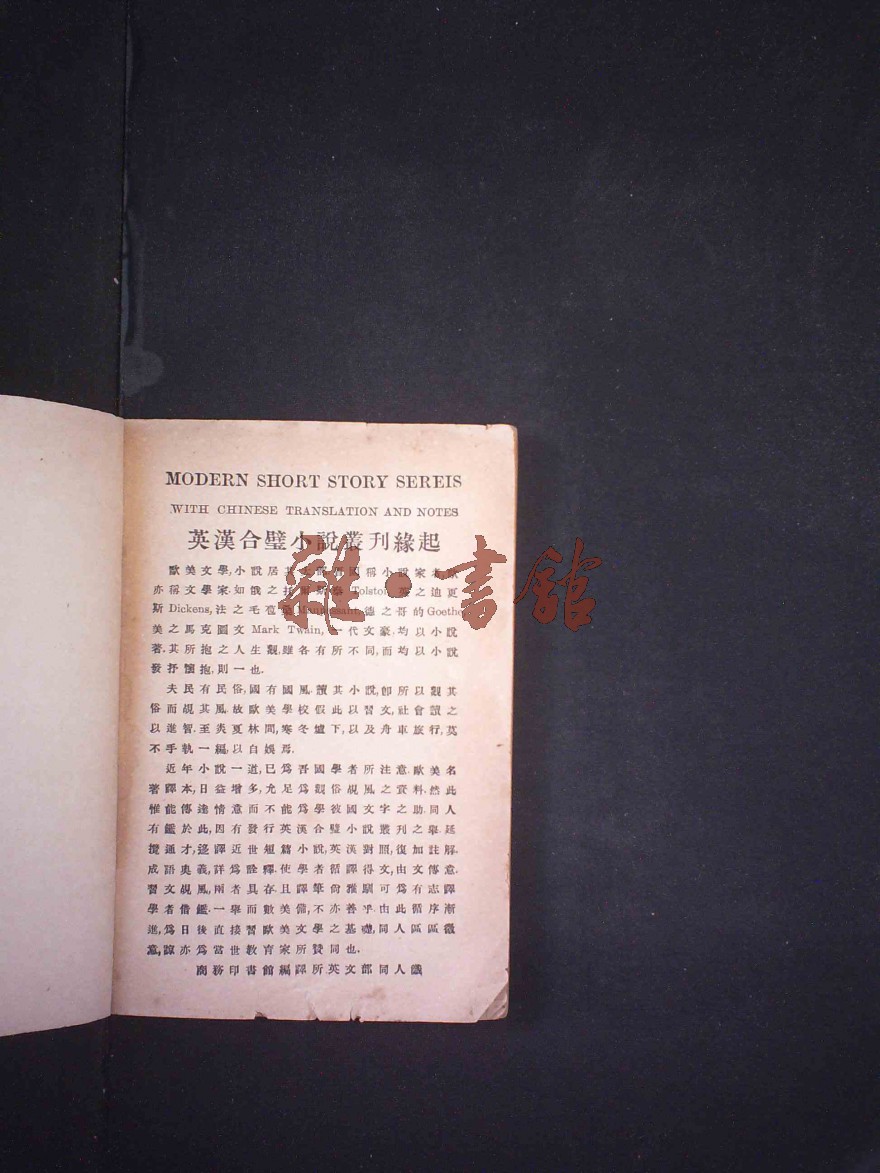 MODERN SHORT STORY SEREIS
WITH CHINESE TRANSLATION AND NOTES
英漢合璧小說叢刊緣起
歐美文學,小說居其 國稱小說家者
亦稱文學家.如俄之托爾斯泰 Tolstoi, 英之迪更
斯 Dickens, 法之毛 桑 Maupassant, 德之哥的 Goethe
美之馬克圖文 Mark Twain, 一代文豪,均以小說
著.其所抱之人生觀,雖各有所不同,而均以小說
發抒懷抱,則一也.
夫民有民俗,國有國風.讀其小說,卽所以觀其
俗而覘其風.故歐美學校假此以習文,社會讀之
以進智.至炎夏林間,寒冬爐下,以及舟車旅行,莫
不手執一編,以自娛焉.
近年小說一道,已爲吾國學者所注意.歐美名
著譯本,日益增多,允足爲觀俗覘風之資料.然此
惟能傳達情意而不能爲學彼國文字之助.同人
有鑑於此,因有發行英漢合璧小說叢刊之舉.延
攬通才,迻譯近世短篇小說,英漢對照,復加註解.
成語奥義,詳爲詮釋.使學者循譯得文,由文傳意.
習文覘風,兩者具存.且譯筆尙雅馴可爲有志譯
學者借鑑.一舉而數美備,不亦善乎.由此循序漸
進,爲日後直接習歐美文學之基礎,同人區區微
意,諒亦爲當世教育家所贊同也.
商務印書館編譯所英文部同人識
雜·書館